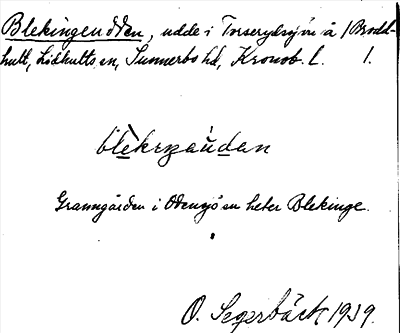 Blekingeudden, udde i Torserydssjön å Brodd-
hult, Lidhults sn, Sunnerbo hd, Kronob. l. 1.
blèkɩŋaùdan
Granngården i Odensjö sn heter Blekinge.
O. Segerbäck 1939.